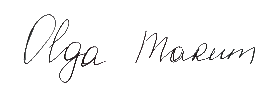 Olga Makum